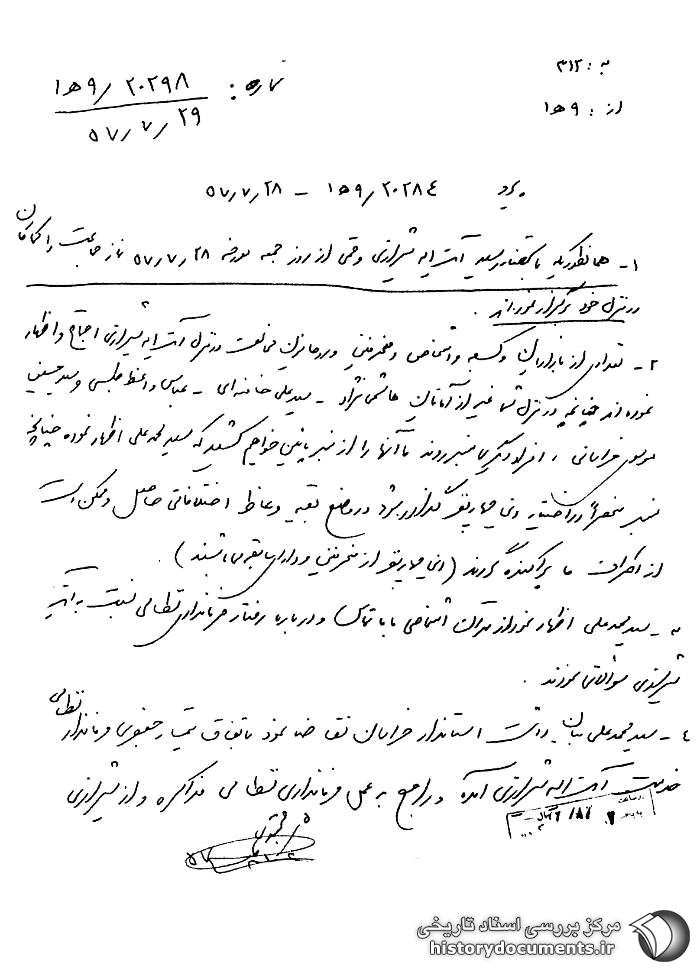 به : ۳۱۲
از : ۹ ه‍ ۱
شماره : ۲۰۲۹۸ / ۹ ه‍ ۱
۲۹ / ۷ / ۵۷
پیرو ۲۰۲۸۴ / ۹ ه‍ ۱ – ۲۸ / ۷ / ۵۷
۱ – همانطوریکه باستحضار رسید آیت اله شیرازی وقتی از روز جمعه مورخه ۲۸ / ۷ / ۵۷ نماز جماعت را کماکان
در منزل خود برگزار نموده‌اند .
۲ – تعدادی از بازاریان و کسبه و اشخاص و منحرفین در منزل آیت اله شیرازی اجتماع و اظهار
نموده‌اند چنانچه در منزل شما غیر از آقایان هاشمی نژاد – سید علی خامنه‌ای – عباس واعظ طبسی و سید حسین
موسوی خراسانی ، افراد دیگری منبر روند ما آنها را از منبر پائین خواهیم کشید که سید محمدعلی اظهار نموده چنانچه
منبر منحصراً در اختیار این چهار نفر گذارده شود در وضع بقیه وعاظ اختلافاتی حاصل و ممکن است
از اطراف ما پراکنده گردند ( این چهار نفر از منحرفین و دارای سابقه میباشند ) .
۳ – سید محمدعلی اظهار نمود از تهران اشخاصی با ما تماس و درباره رفتار فرمانداری نظامی نسبت به آیت اله
شیرازی سؤالاتی نمودند .
۴ – سید محمدعلی بیان داشت استاندار خراسان تقاضا نمود باتفاق تیمسار جعفری فرماندار نظامی
خدمت آیت اله شیرازی آمده و راجع به عمل فرمانداری نظامی مذاکره و از شیرازی
مرکز بررسی اسناد تاریخی
historydocuments.ir